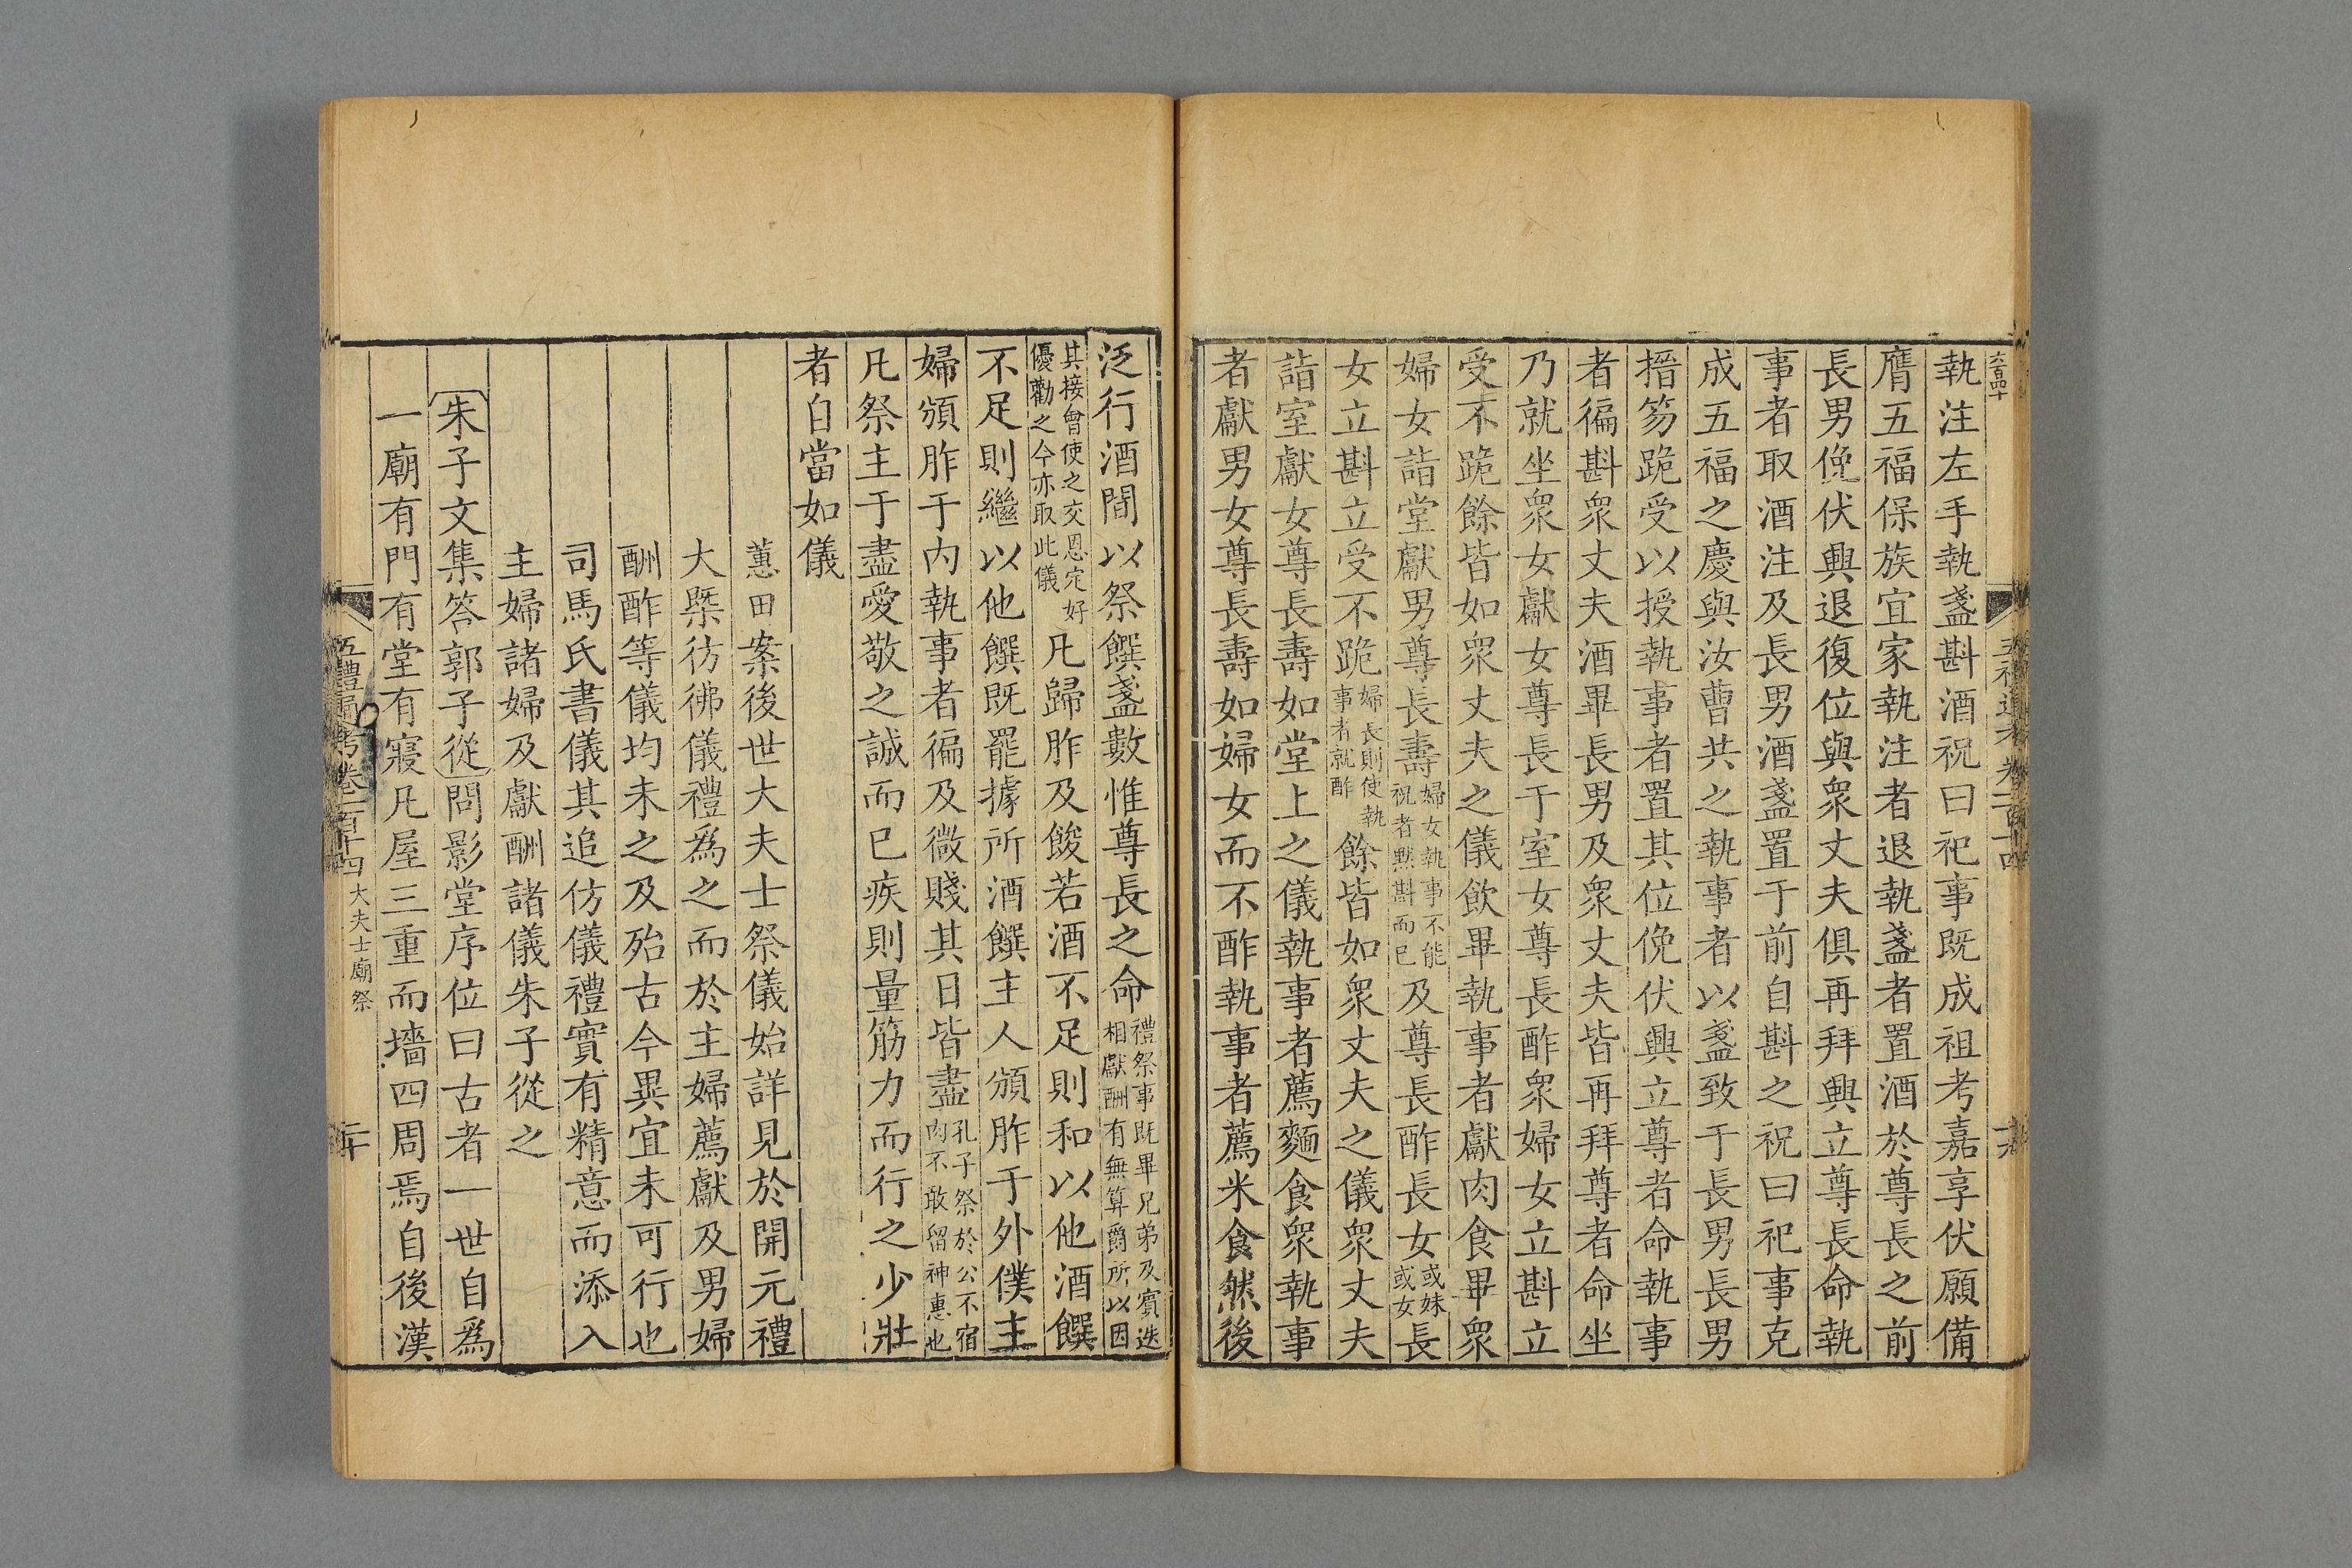 執注左手執盞斟酒祝曰祀事既成祖考嘉享伏願備
膺五福保族宜家執注者退執盞者置酒於尊長之前
長男俛伏興退復位與衆丈夫俱再拜興立尊長命執
事者取酒注及長男酒盞置于前自斟之祝曰祀事克
成五福之慶與汝曹共之執事者以盞致于長男長男
搢笏跪受以授執事者置其位俛伏興立尊者命執事
者徧斟衆丈夫酒畢長男及衆丈夫皆再拜尊者命坐
乃就坐衆女獻女尊長于室女尊長酢衆婦女立斟立
受不跪餘皆如衆丈夫之儀飲畢執事者獻肉食畢衆
婦女詣堂獻男尊長壽婦女執事不能祝者黙斟而已及尊長酢長女或妹或女長
女立斟立受不跪婦長則使執事者就酢餘皆如衆丈夫之儀衆丈夫
詣室獻女尊長壽如堂上之儀執事者薦麵食衆執事
者獻男女尊長壽如婦女而不酢執事者薦米食然後
泛行酒間以祭饌盞數惟尊長之命禮祭事既畢兄弟及賓迭相獻酬有無算爵所以因
其接會使之交恩定好優勸之今亦取此儀凡歸胙及餕若酒不足則和以他酒饌
不足則繼以他饌既罷據所酒饌主人頒胙于外僕主
婦頒胙于内執事者徧及微賤其日皆盡孔子祭於公不宿肉不敢留神惠也
凡祭主于盡愛敬之誠而已疾則量筋力而行之少壯
者自當如儀
蕙田案後世大夫士祭儀始詳見於開元禮
大槩彷彿儀禮為之而於主婦薦獻及男婦
酬酢等儀均未之及殆古今異宜未可行也
司馬氏書儀其追仿儀禮實有精意而添入
主婦諸婦及獻酬諸儀朱子從之
朱子文集答郭子從問影堂序位曰古者一世自為
一廟有門有堂有寢凡屋三重而墻四周焉自後漢
五禮通考卷一百十四 大夫士廟祭 二十